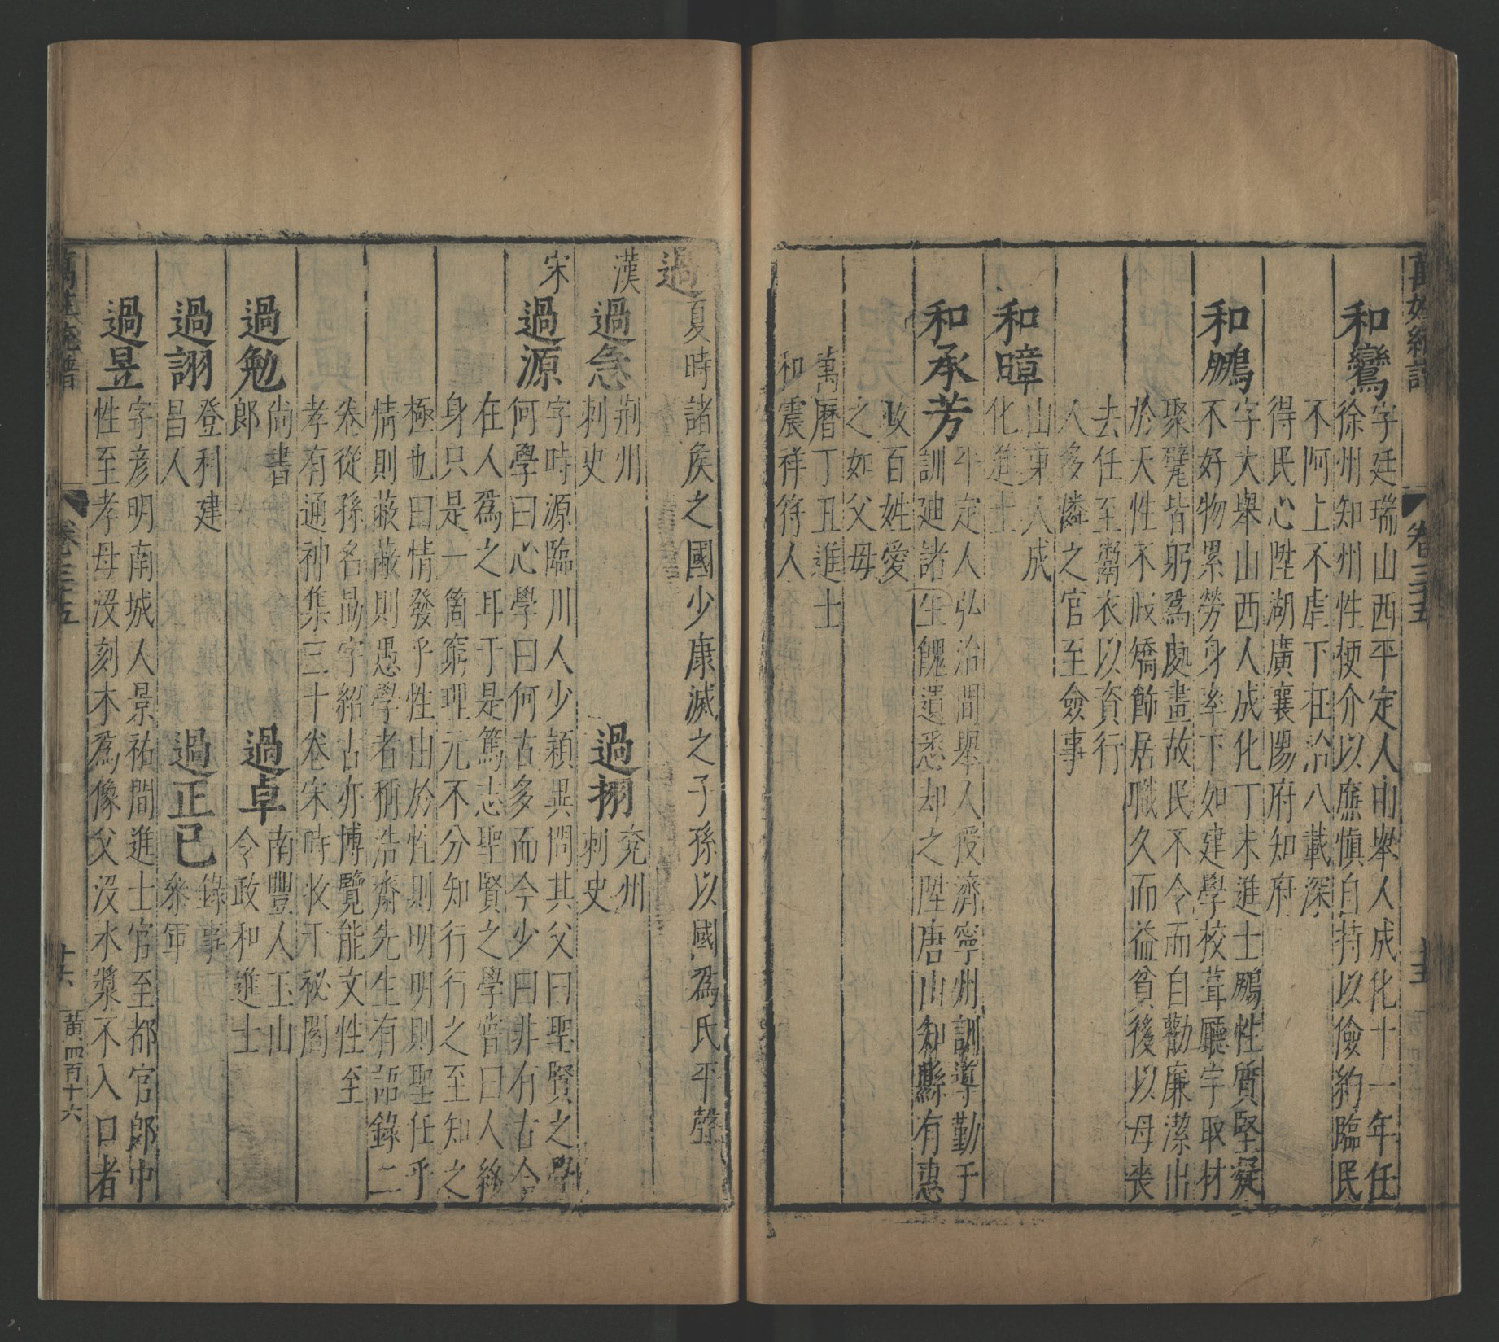 萬姓統譜 卷三十五
和鸞
字廷瑞山西平定人由舉人成化十一年任
徐州知州性梗介以廉慎自持以儉約臨民
不阿上不虐下在治八載深
得民心陞湖廣襄陽府知府
和鵬
字大舉山西人成化丁未進士鵬性質堅凝
不好物累勞身率下如建學校葺廳宇取材
聚甓皆躬為處畫故民不令而自勸廉潔出
於天性不啟矯飾居職久而益貧後以母喪
去任至鬻衣以資行
人多憐之官至僉事
和暲
山東人成
化進士
和承芳
平定人弘治間舉人授濟寧州訓導勤于
訓廸諸生餽遺悉却之陞唐山知縣有惠
政百姓愛
之如父母
萬曆丁丑進士
和震祥符人
過
夏時諸侯之國少康滅之子孫以國為氏平聲
漢
過急
荊州
刺史
過栩
兗州
刺史
宋
過源
字時源臨川人少穎異問其父曰聖賢之學
何學曰心學曰何古多而今少曰非有古今
在人為之耳于是篤志聖賢之學嘗曰人終
身只是一箇窮理元不分知行行之至知之
極也曰情發乎性由於性則明明則聖任乎
情則蔽蔽則愚學者稱浩齋先生有語錄二
卷從孫名勗字紹古亦博覽能文性至
孝有通神集三十卷宋時收入祕閣
過勉
尚書
郎
過卓
南豐人玉山
令政和進士
過詡
登科建
昌人
過正己
錄事
參軍
過昱
字彥明南城人景祐間進士官至都官郎中
性至孝母沒刻木為像父沒水漿不入口者
萬姓統譜 卷三十五 十六 黃四百十六